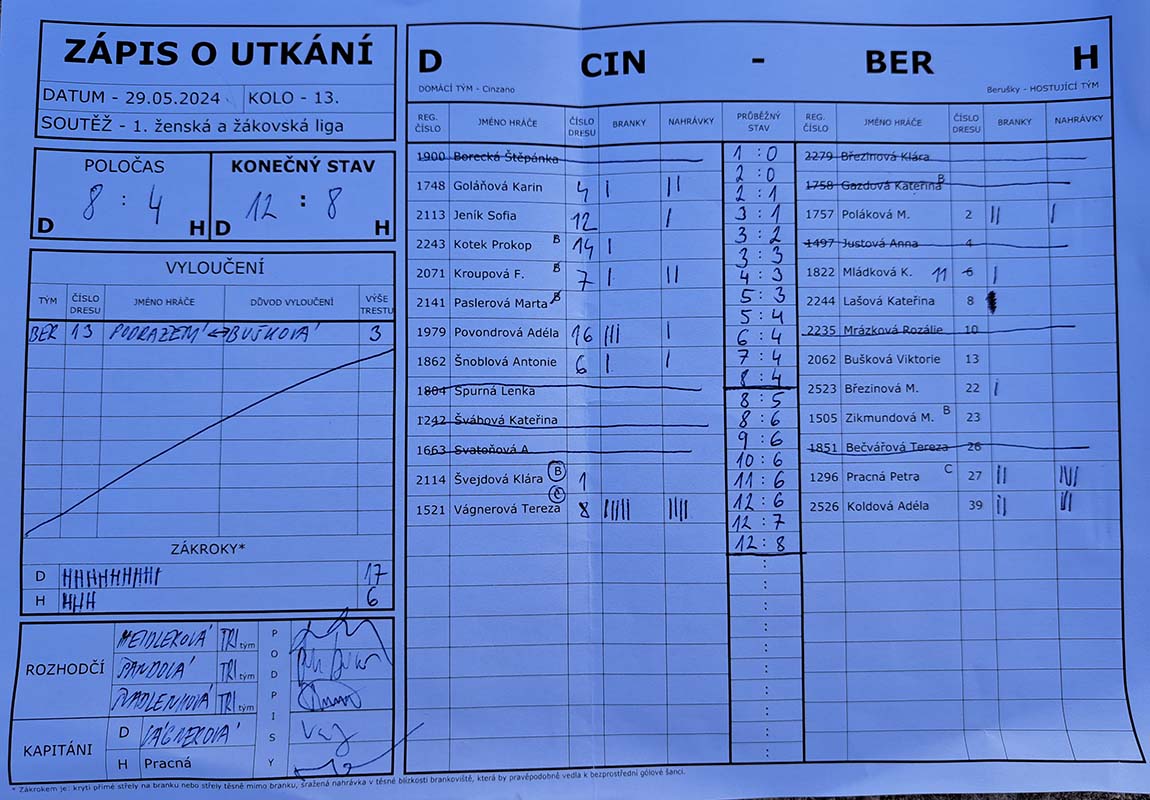 ZÁPIS O UTKÁNÍ
DATUM - 29.05.2024 KOLO - 13.
SOUTĚŽ - 1. ženská a žákovská liga
POLOČAS KONEČNÝ STAV
8 : 4 12 : 8
D H D H
VYLOUČENÍ
TÝM ČÍSLO DRESU JMÉNO HRÁČE DŮVOD VYLOUČENÍ VÝŠE TRESTU
BER 13 PODRAŽENÍ ↔ BUŠKOVÁ 3
ZÁKROKY*
D 17
H 6
ROZHODČÍ
TŘI tým
TŘI tým
TŘI tým
PODPISY
KAPITÁNI
D VÁGNEROVÁ
H Pracná
D CIN - BER H
DOMÁCÍ TÝM - Cinzano Berušky - HOSTUJÍCÍ TÝM
REG. ČÍSLO JMÉNO HRÁČE ČÍSLO DRESU BRANKY NAHRÁVKY PRŮBĚŽNÝ STAV REG. ČÍSLO JMÉNO HRÁČE ČÍSLO DRESU BRANKY NAHRÁVKY
1900 Borecká Štěpánka
1748 Goláňová Karin 4 | ||
2113 Jeník Sofia 12 |
2243 Kotek Prokop B 14 |
2071 Kroupová F. B 7 | ||
2141 Paslerová Marta B
1979 Povondrová Adéla 16 ||| |
1862 Šnoblová Antonie 6 | |
1804 Spurná Lenka
1242 Švábová Kateřina
1663 Svatoňová A.
2114 Švejdová Klára B 1
1521 Vágnerová Tereza C 8 ||||| ||||
1 : 0
2 : 0
2 : 1
3 : 1
3 : 2
3 : 3
4 : 3
5 : 3
5 : 4
6 : 4
7 : 4
8 : 4
8 : 5
8 : 6
9 : 6
10 : 6
11 : 6
12 : 6
12 : 7
12 : 8
2279 Březinová Klára
1758 Gazdová Kateřina B
1757 Poláková M. 2 || |
1497 Justová Anna 4
1822 Mládková K. 11 6 |
2244 Lašová Kateřina 8
2235 Mrázková Rozálie 10
2062 Bušková Viktorie 13
2523 Březinová M. 22 |
1505 Zikmundová M. B 23
1851 Bečvářová Tereza 26
1296 Pracná Petra C 27 ||
2526 Koldová Adéla 39 ||
* Zákrokem je: krytí přímé střely na branku nebo střely těsně mimo branku, sražená nahrávka v těsné blízkosti brankoviště, která by pravěpodobně vedla k bezprostřední gólové šanci.